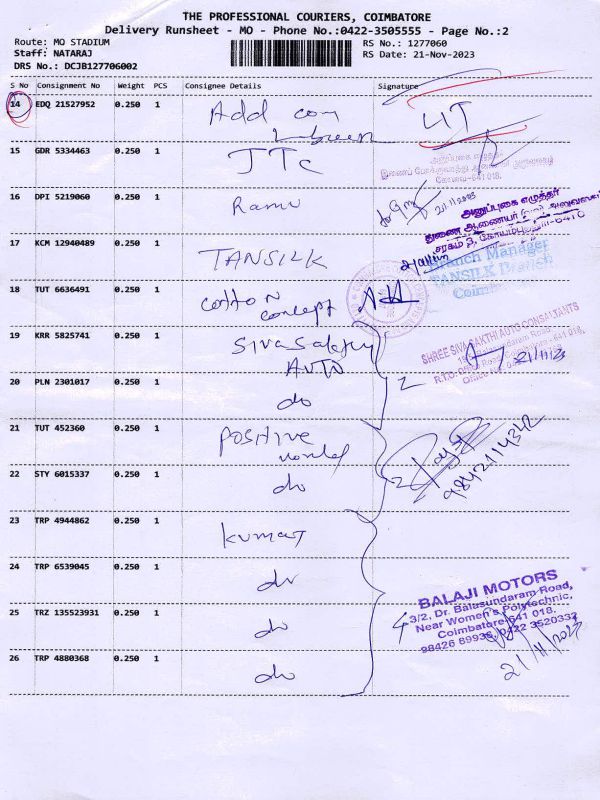 THE PROFESSIONAL COURIERS, COIMBATORE
Delivery Runsheet - MO - Phone No.:0422-3505555 - Page No.:2
Route: MQ STADIUM
RS No.: 1277060
Staff: NATARAJ
RS Date: 21-Nov-2023
DRS No.: DCJB127706002
S No Consignment No Weight PCS Consignee Details Signature
14 EDQ 21527952 0.250 1 Add com
15 GDR 5334463 0.250 1 JTC
அனுப்புகை எழுத்தர்
கோவை-641 018.
16 DPI 5219060 0.250 1 Ramu
21/11/2023
அனுப்புகை எழுத்தர்
துணை ஆணையர்
17 KCM 12940489 0.250 1 TANSILK
Branch Manager
TANSILK Branch
18 TUT 6636491 0.250 1 cotton
concept
19 KRR 5825741 0.250 1 Siva Sakthi
AUTO
SHREE SIVA SAKTHI AUTO CONSULTANTS
21/11/23
20 PLN 2301017 0.250 1 do
2
21 TUT 452360 0.250 1 positive
22 STY 6015337 0.250 1 do
2
9842114342
23 TRP 4944862 0.250 1 kumar
24 TRP 6539045 0.250 1 do
25 TRZ 135523931 0.250 1 do
4
BALAJI MOTORS
3/2, Dr. Balasundaram Road,
Near Women's Polytechnic,
Coimbatore-641 018.
98426 89936, 0422 3520332
26 TRP 4880368 0.250 1 do
21/11/2023